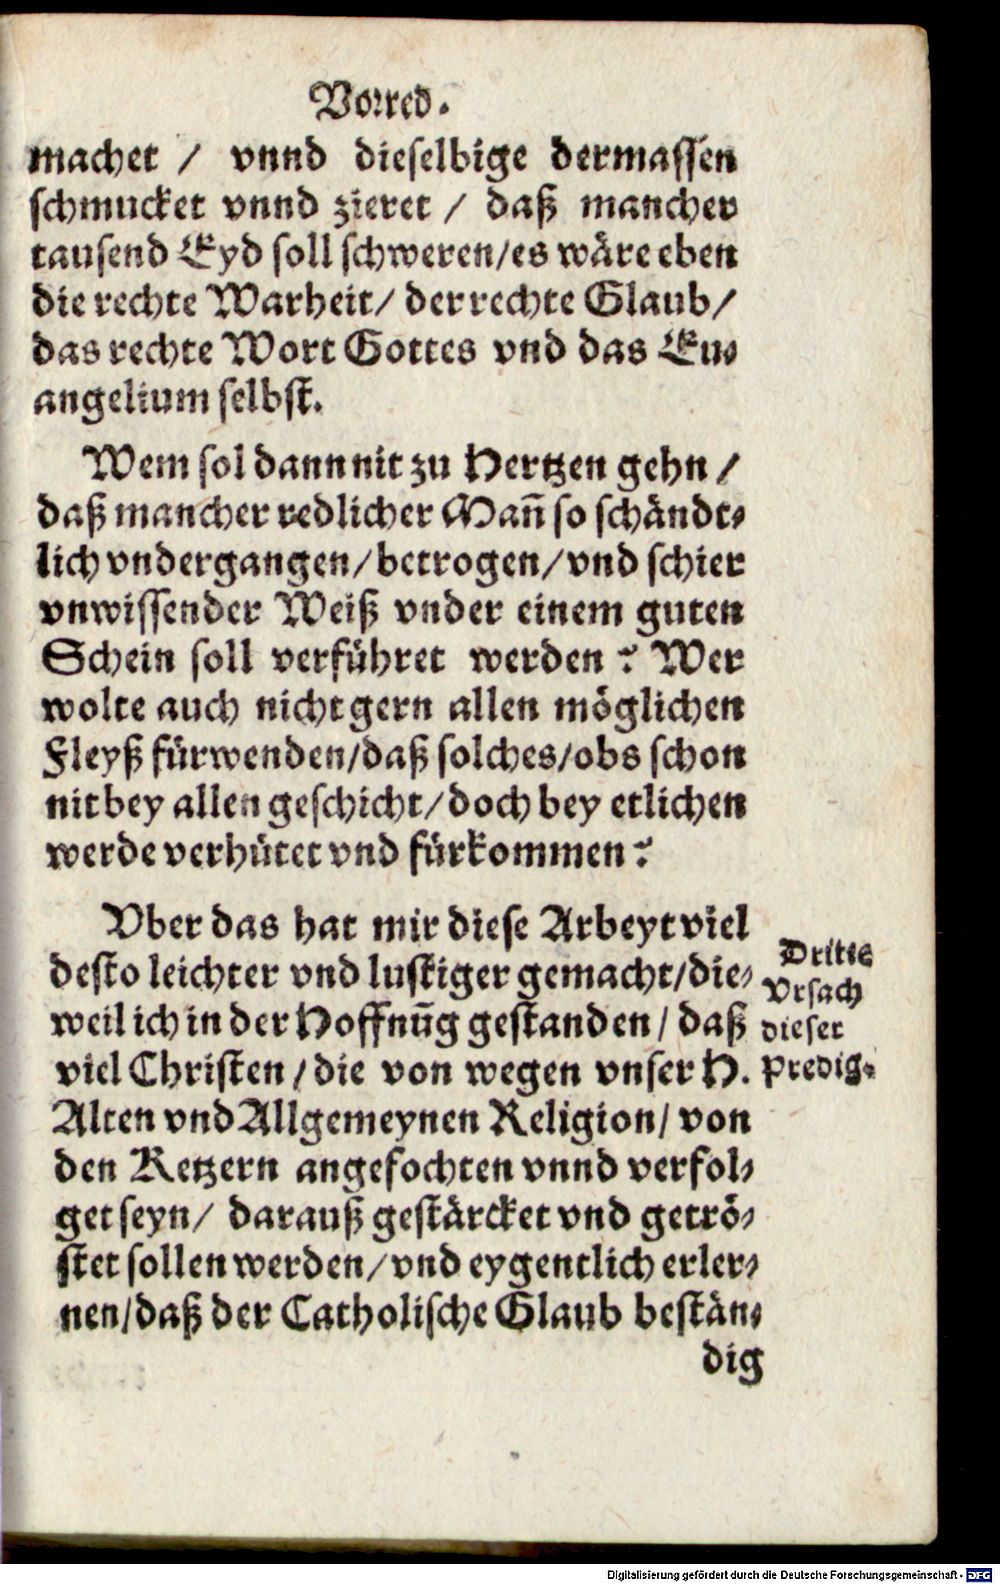 Vorred.
machet / vnnd dieselbige dermassen
schmucket vnnd zieret / daß mancher
tausend Eyd soll schweren/es wäre eben
die rechte Warheit/ der rechte Glaub/
das rechte Wort Gottes vnd das Eu-
angelium selbst.
Wem sol dann nit zu Hertzen gehn /
daß mancher redlicher Mañ so schändt-
lich vndergangen/betrogen/vnd schier
vnwissender Weiß vnder einem guten
Schein soll verführet werden? Wer
wolte auch nicht gern allen möglichen
Fleyß fürwenden/daß solches/obs schon
nit bey allen geschicht/doch bey etlichen
werde verhütet vnd fürkommen?
Vber das hat mir diese Arbeyt viel
desto leichter vnd lustiger gemacht/die-
weil ich in der Hoffnūg gestanden/ daß
viel Christen/die von wegen vnser H.
Alten vnd Allgemeynen Religion/ von
den Ketzern angefochten vnnd verfol-
get seyn/ darauß gestärcket vnd getrö-
stet sollen werden/vnd eygentlich erler-
nen/daß der Catholische Glaub bestän-
dig
Dritte
Vrsach
dieser
Predig.
Digitalisierung gefördert durch die Deutsche Forschungsgemeinschaft - DFG